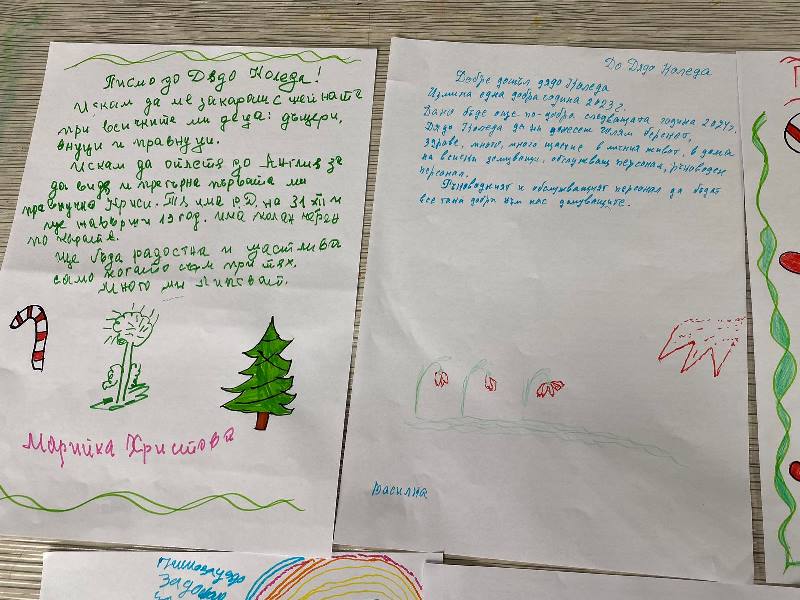 Писмо до Дядо Коледа!
Искам да ме закараш с шейната
при всичките ми деца: дъщери,
внуци и правнуци.
Искам да отлетя до Англия за
да видя и прегърна първата ми
правнучка Криси. Тя има Р.Д. на 31 XII и
ще навърши 19 год. има колан черен
по карате.
Ще бъда радостна и щастлива
само когато съм при тях.
Много ми липсват.
Марийка Христова
До Дядо Коледа
Добре дошъл дядо Коледа
Измина една добра година 2023 г.
Дано бъде още по-добра следващата година 2024 г.
Дядо Коледа да ни донесеш голям берекет,
здраве, много, много щастие в личния живот, в дома
на всички домуващи, обслужващ персонал, ръководен
персонал.
Ръководният и обслужващият персонал да бъдат
все така добри към нас домуващите.
Василка